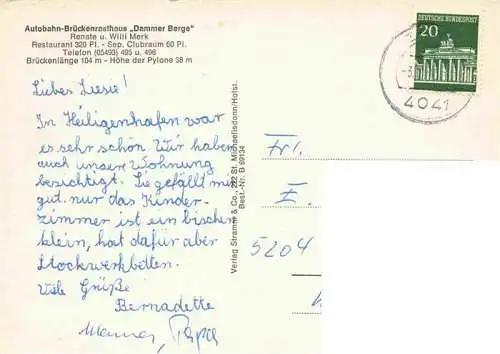 Autobahn-Brückenrasthaus „Dammer Berge"
Renate u. Willi Merk
Restaurant 320 Pl. - Sep. Clubraum 60 Pl.
Telefon (05493) 495 u. 496
Brückenlänge 104 m - Höhe der Pylone 38 m
Liebes Liesie!
In Heiligenhafen war
es sehr schön. Wir haben
auch unsere Wohnung
besichtigt. Sie gefällt mir
gut. nur das Kinder-
zimmer ist ein bischen
klein, hat dafür aber
Stockwerkbetten.
Viele Grüße
Bernadette
Mama, Papa
Verlag Stramm & Co., 222 St. Michaelisdonn/Holst.
Best.-Nr. B 69134
DEUTSCHE BUNDESPOST
20
4041
Frl.
I.
5204